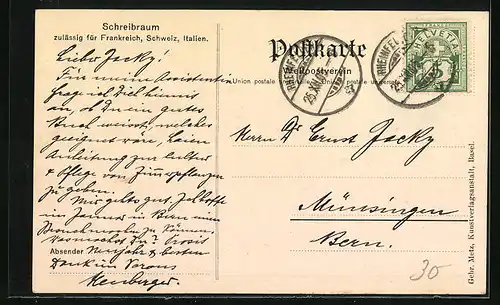 Schreibraum
zulässig für Frankreich, Schweiz, Italien.
Lieber Jacky!
Für meine Assistentin
frage ich Dich hiermit
an, ob Du ein gutes
Buch weisst, welches
geeignet wäre, Laien
Anleitung zur Cultur
& Pflege von Zimmerpflanzen
zu geben.
Mir geht's gut. Ich hoffe
im Januar in Bern einen
Besuch machen zu können,
Prosit
Absender
Neujahr & besten
Dank im Voraus
Postkarte
Weltpostverein
Union postale
RHEINFEL
25.XII
RHEINFEL
25.XII
HELVETIA
5
Herrn Dr Ernst Jacky
Münsingen
Bern.
Gebr. Metz, Kunstverlagsanstalt, Basel.
30